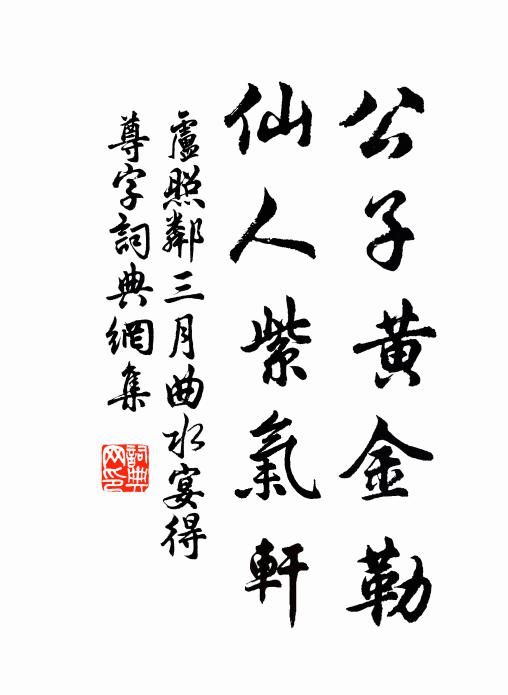 公子黄金勒
仙人紫氣軒
盧照鄰三月曲水宴得
尊字詞典網集
詞典网印